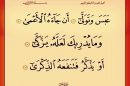 عَبَسَ وَتَوَلَّىٰٓ ۝ أَن جَآءَهُ ٱلْأَعْمَىٰ ۝
وَمَا يُدْرِيكَ لَعَلَّهُۥ يَزَّكَّىٰٓ ۝
أَوْ يَذَّكَّرُ فَتَنفَعَهُ ٱلذِّكْرَىٰٓ ۝